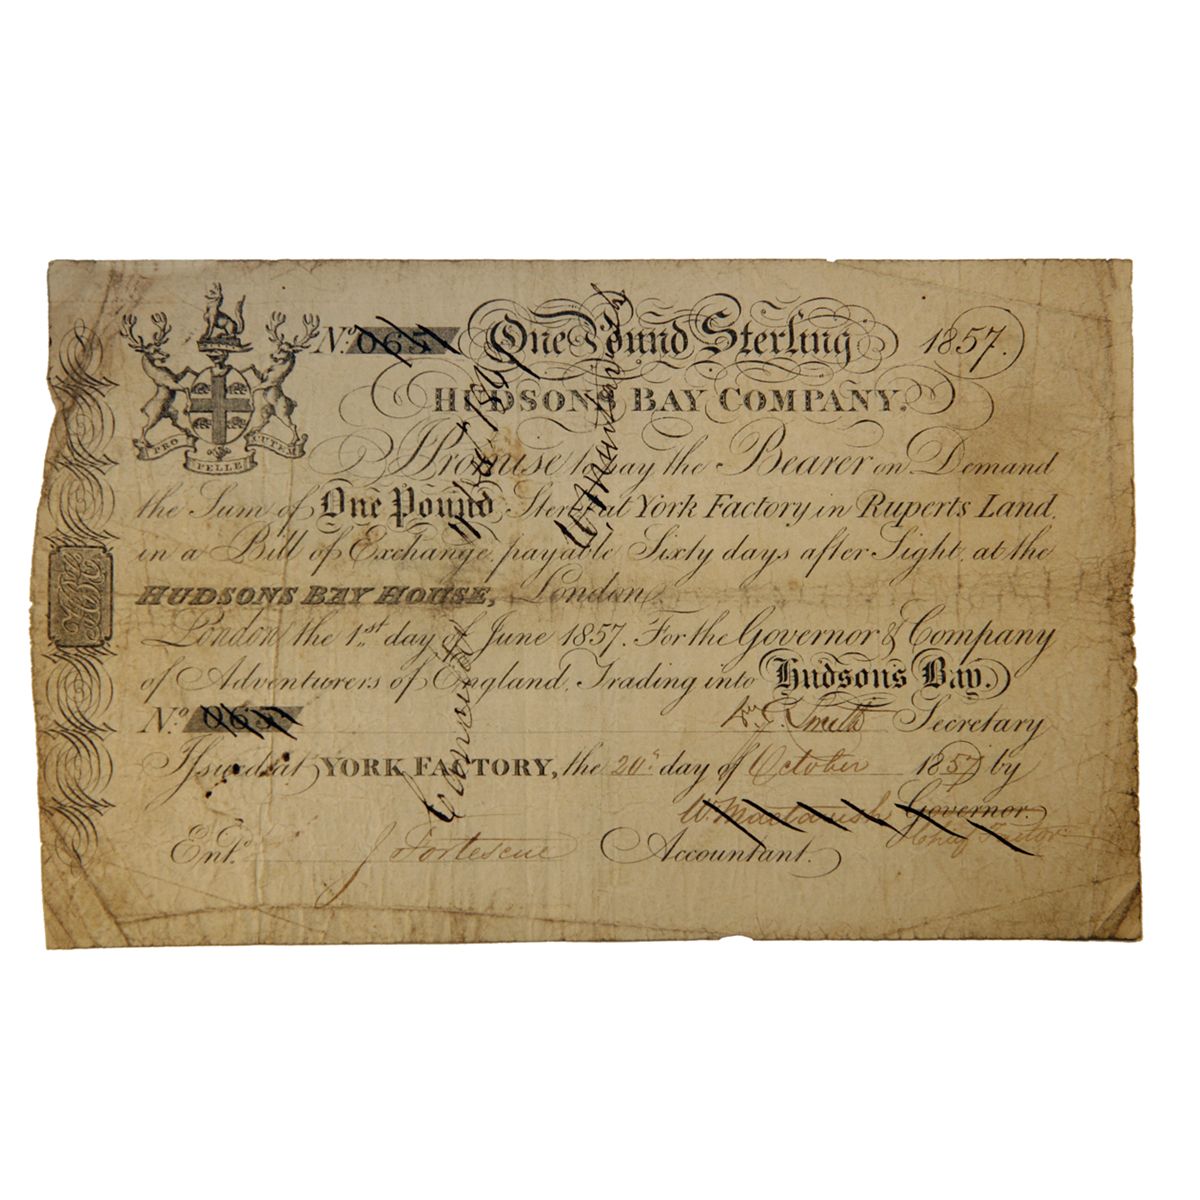 No. 065 One Pound Sterling 1857.
HUDSONS BAY COMPANY.
PRO PELLE CUTEM
I Promise to pay the Bearer on Demand
the Sum of One Pound Sterg. at York Factory in Ruperts Land
in a Bill of Exchange, payable Sixty days after Sight, at the
HUDSONS BAY HOUSE, London.
HBC
London the 1st. day of June 1857. For the Governor & Company
of Adventurers of England, Trading into Hudson's Bay.
No. 065 Smith Secretary
Issued at YORK FACTORY, the 20 day of October 1857 by
W. Mactavish Governor.
Chief Factor
Entd. J Fortescue Accountant.
Cancelled
W Mactavish